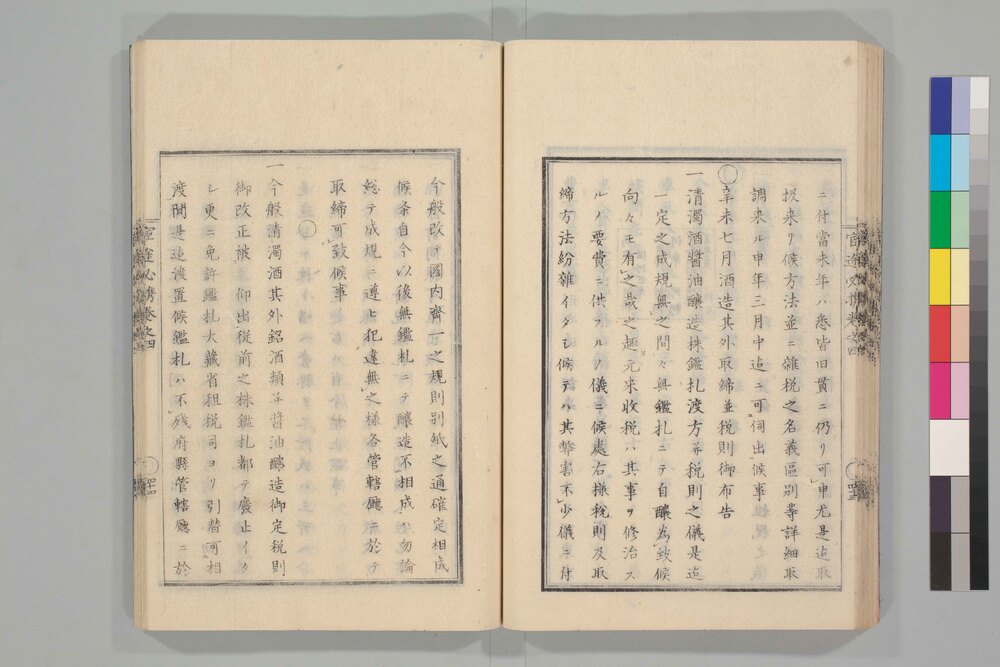 ニ付當未年ハ悉皆旧貫ニ仍リ可申尤是迠取
扱来リ候方法並ニ雑税之名義區別等詳細取
調来ル申年三月中迠ニ可伺出候事
○辛未七月酒造其外取締並税則御布告
一清濁酒醬油釀造株鑑札渡方并税則之儀是迠
一定之成規無之間々無鑑札ニテ自釀為致候
向々モ有之哉之趣元来收税ハ其事ヲ修治ス
ルノ要費ニ供フルノ儀ニ候處右様税則及取
締方法紛雑イタシ候テハ其弊害不少儀ニ付
今般改テ國内齊一之規則別紙之通確定相成
候条自今以後無鑑札ニテ釀造不相成ハ勿論
総テ成規ニ遵ヒ犯違無之様各管轄廳ニ於テ
取締可致候事
○
一今般清濁酒其外銘酒類并醬油釀造御定税則
御改正被仰出従前之株鑑札都テ廢止イタ
シ更ニ免許鑑札大藏省租税司ヨリ引替可相
渡間是迠渡置候鑑札ハ不残府縣管轄廳ニ於
官途必携巻之四